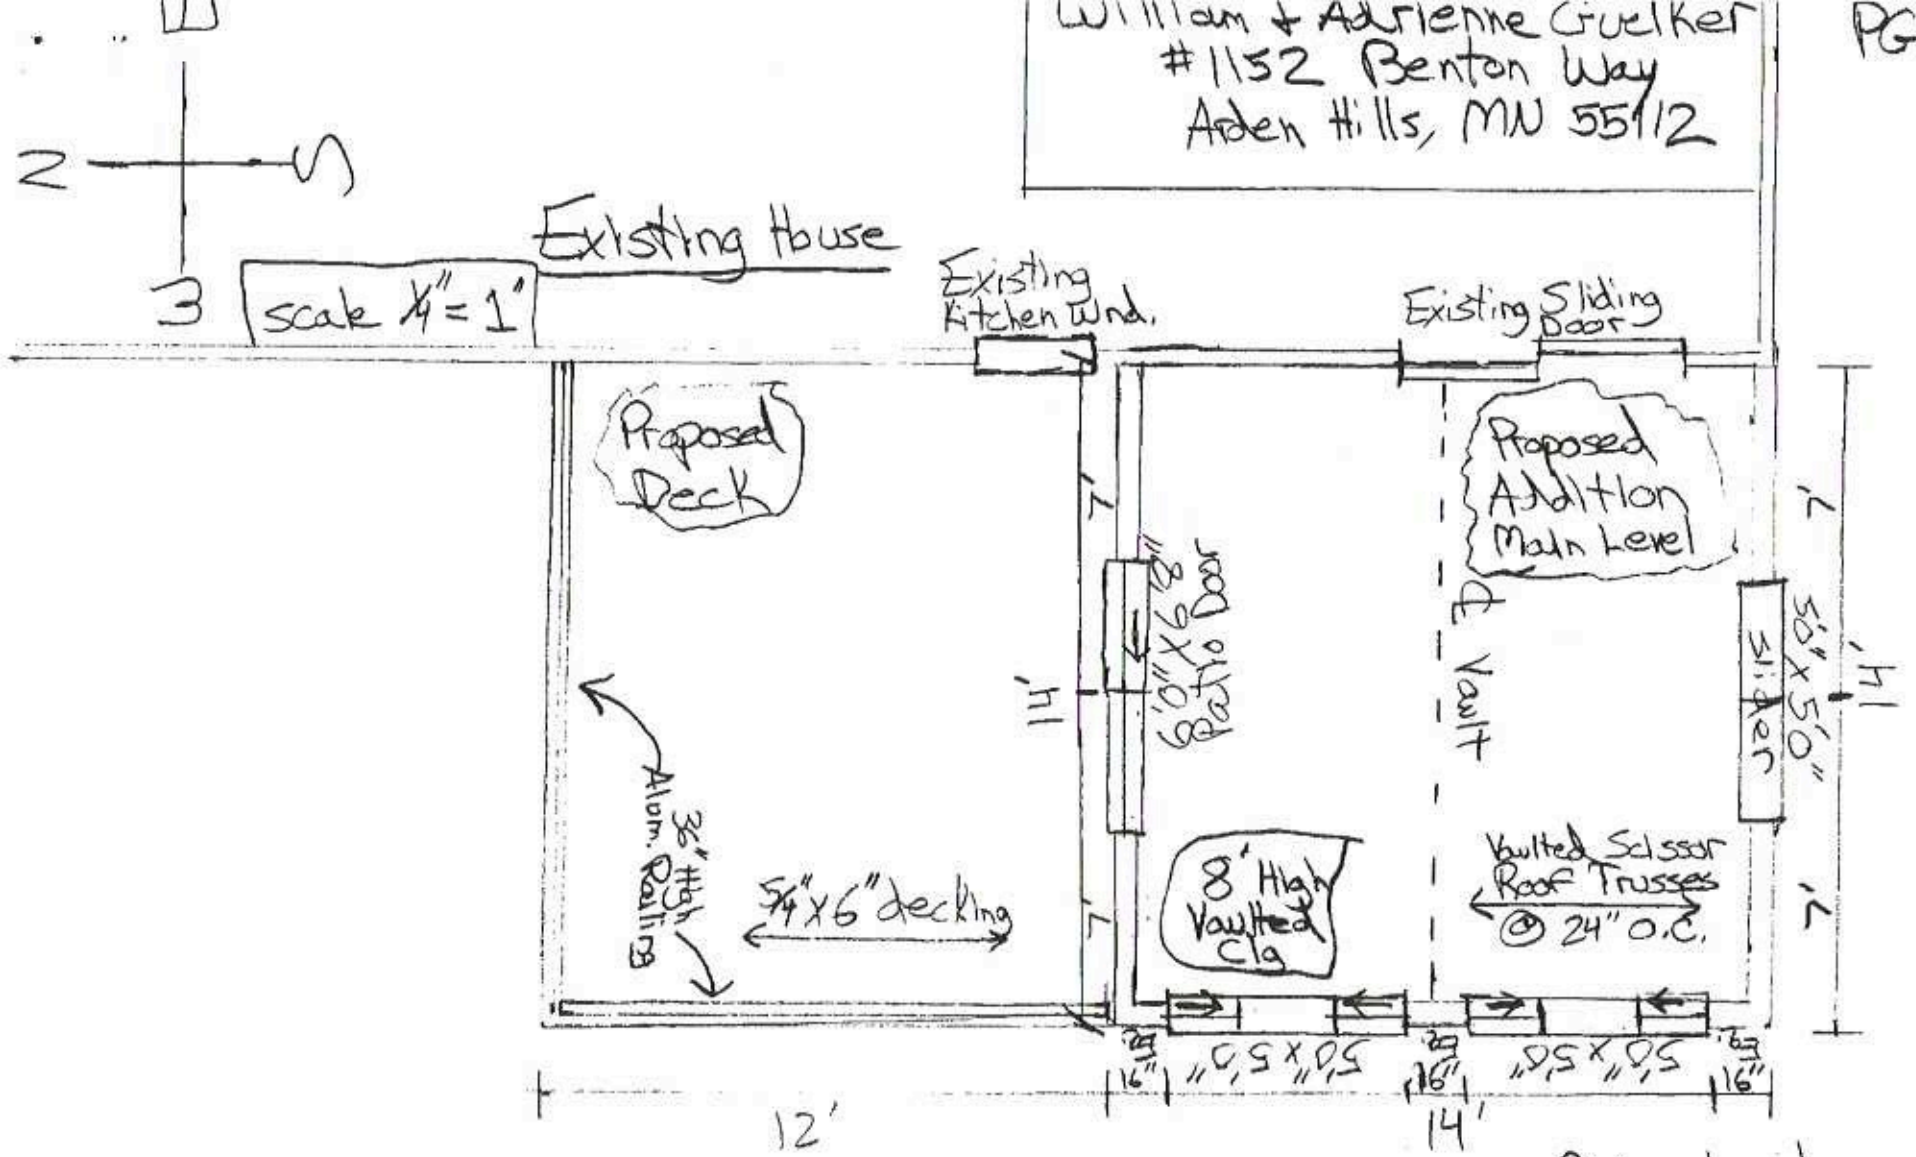 William & Adrienne Guelker
#1152 Benton Way
Arden Hills, MN 55112
PG
N
S
E
W
scale 1/4" = 1"
Existing House
Existing
Kitchen Wnd.
Existing Sliding
Door
Proposed
Deck
Proposed
Addition
Main Level
7'
7'
14'
6'0" x 6'8"
Patio Door
℄ Vault
7'
7'
14'
Slider
5'0" x 5'0"
36" High
Alum. Railing
5/4" x 6" decking
8' High
Vaulted
Clg
Vaulted Scissor
Roof Trusses
@ 24" O.C.
Eq.
16"
5'0" x 5'0"
Eq.
16"
5'0" x 5'0"
Eq.
16"
12'
14'